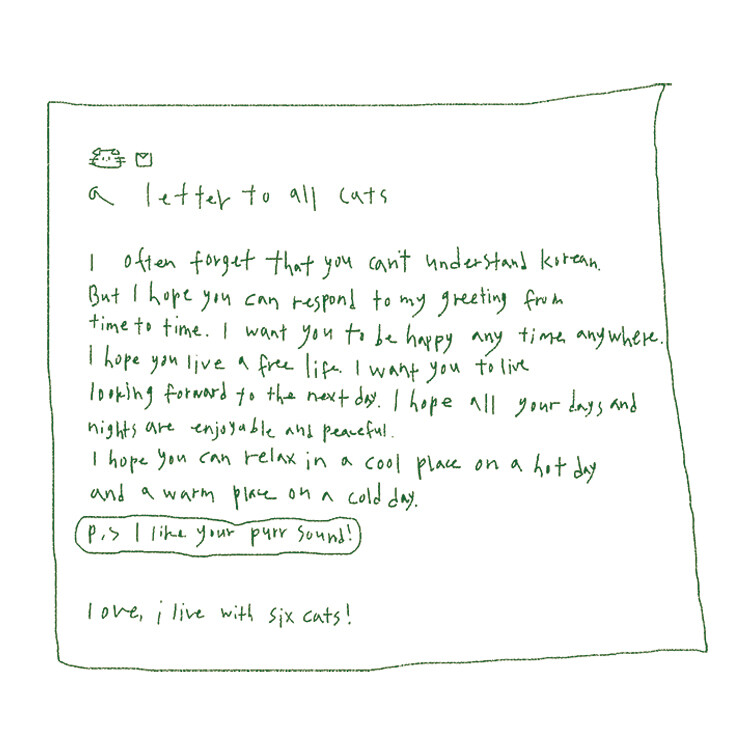 a letter to all cats
I often forget that you can't understand korean.
But I hope you can respond to my greeting from
time to time. I want you to be happy any time, anywhere.
I hope you live a free life. I want you to live
looking forward to the next day. I hope all your days and
nights are enjoyable and peaceful.
I hope you can relax in a cool place on a hot day
and a warm place on a cold day.
p.s I like your purr sound!
love, i live with six cats!